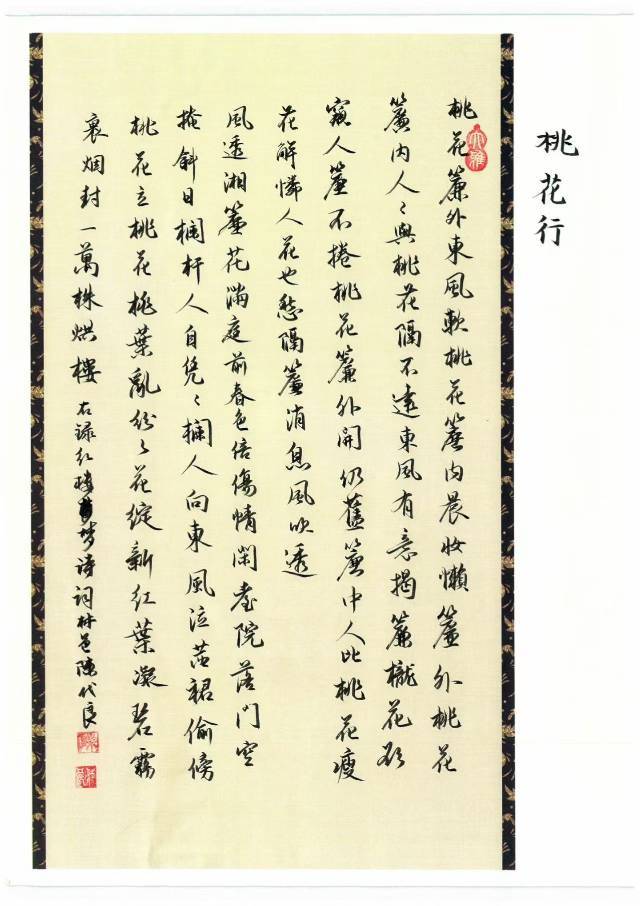 桃花行
桃花簾外東風軟桃花簾内晨妝懶簾外桃花
簾内人〻與桃花隔不遠東風有意揭簾櫳花欲
窺人簾不捲桃花簾外開仍舊簾中人比桃花瘦
花解憐人花也愁隔簾消息風吹透
風透湘簾花滿庭前春色倍傷情閑苔院落門空
掩斜日欄杆人自凭〻欄人向東風泣茜裙偷傍
桃花立桃花桃葉亂紛〻花綻新紅葉凝碧霧
裹烟封一萬株烘樓
右录红楼梦诗词林邑陳代良